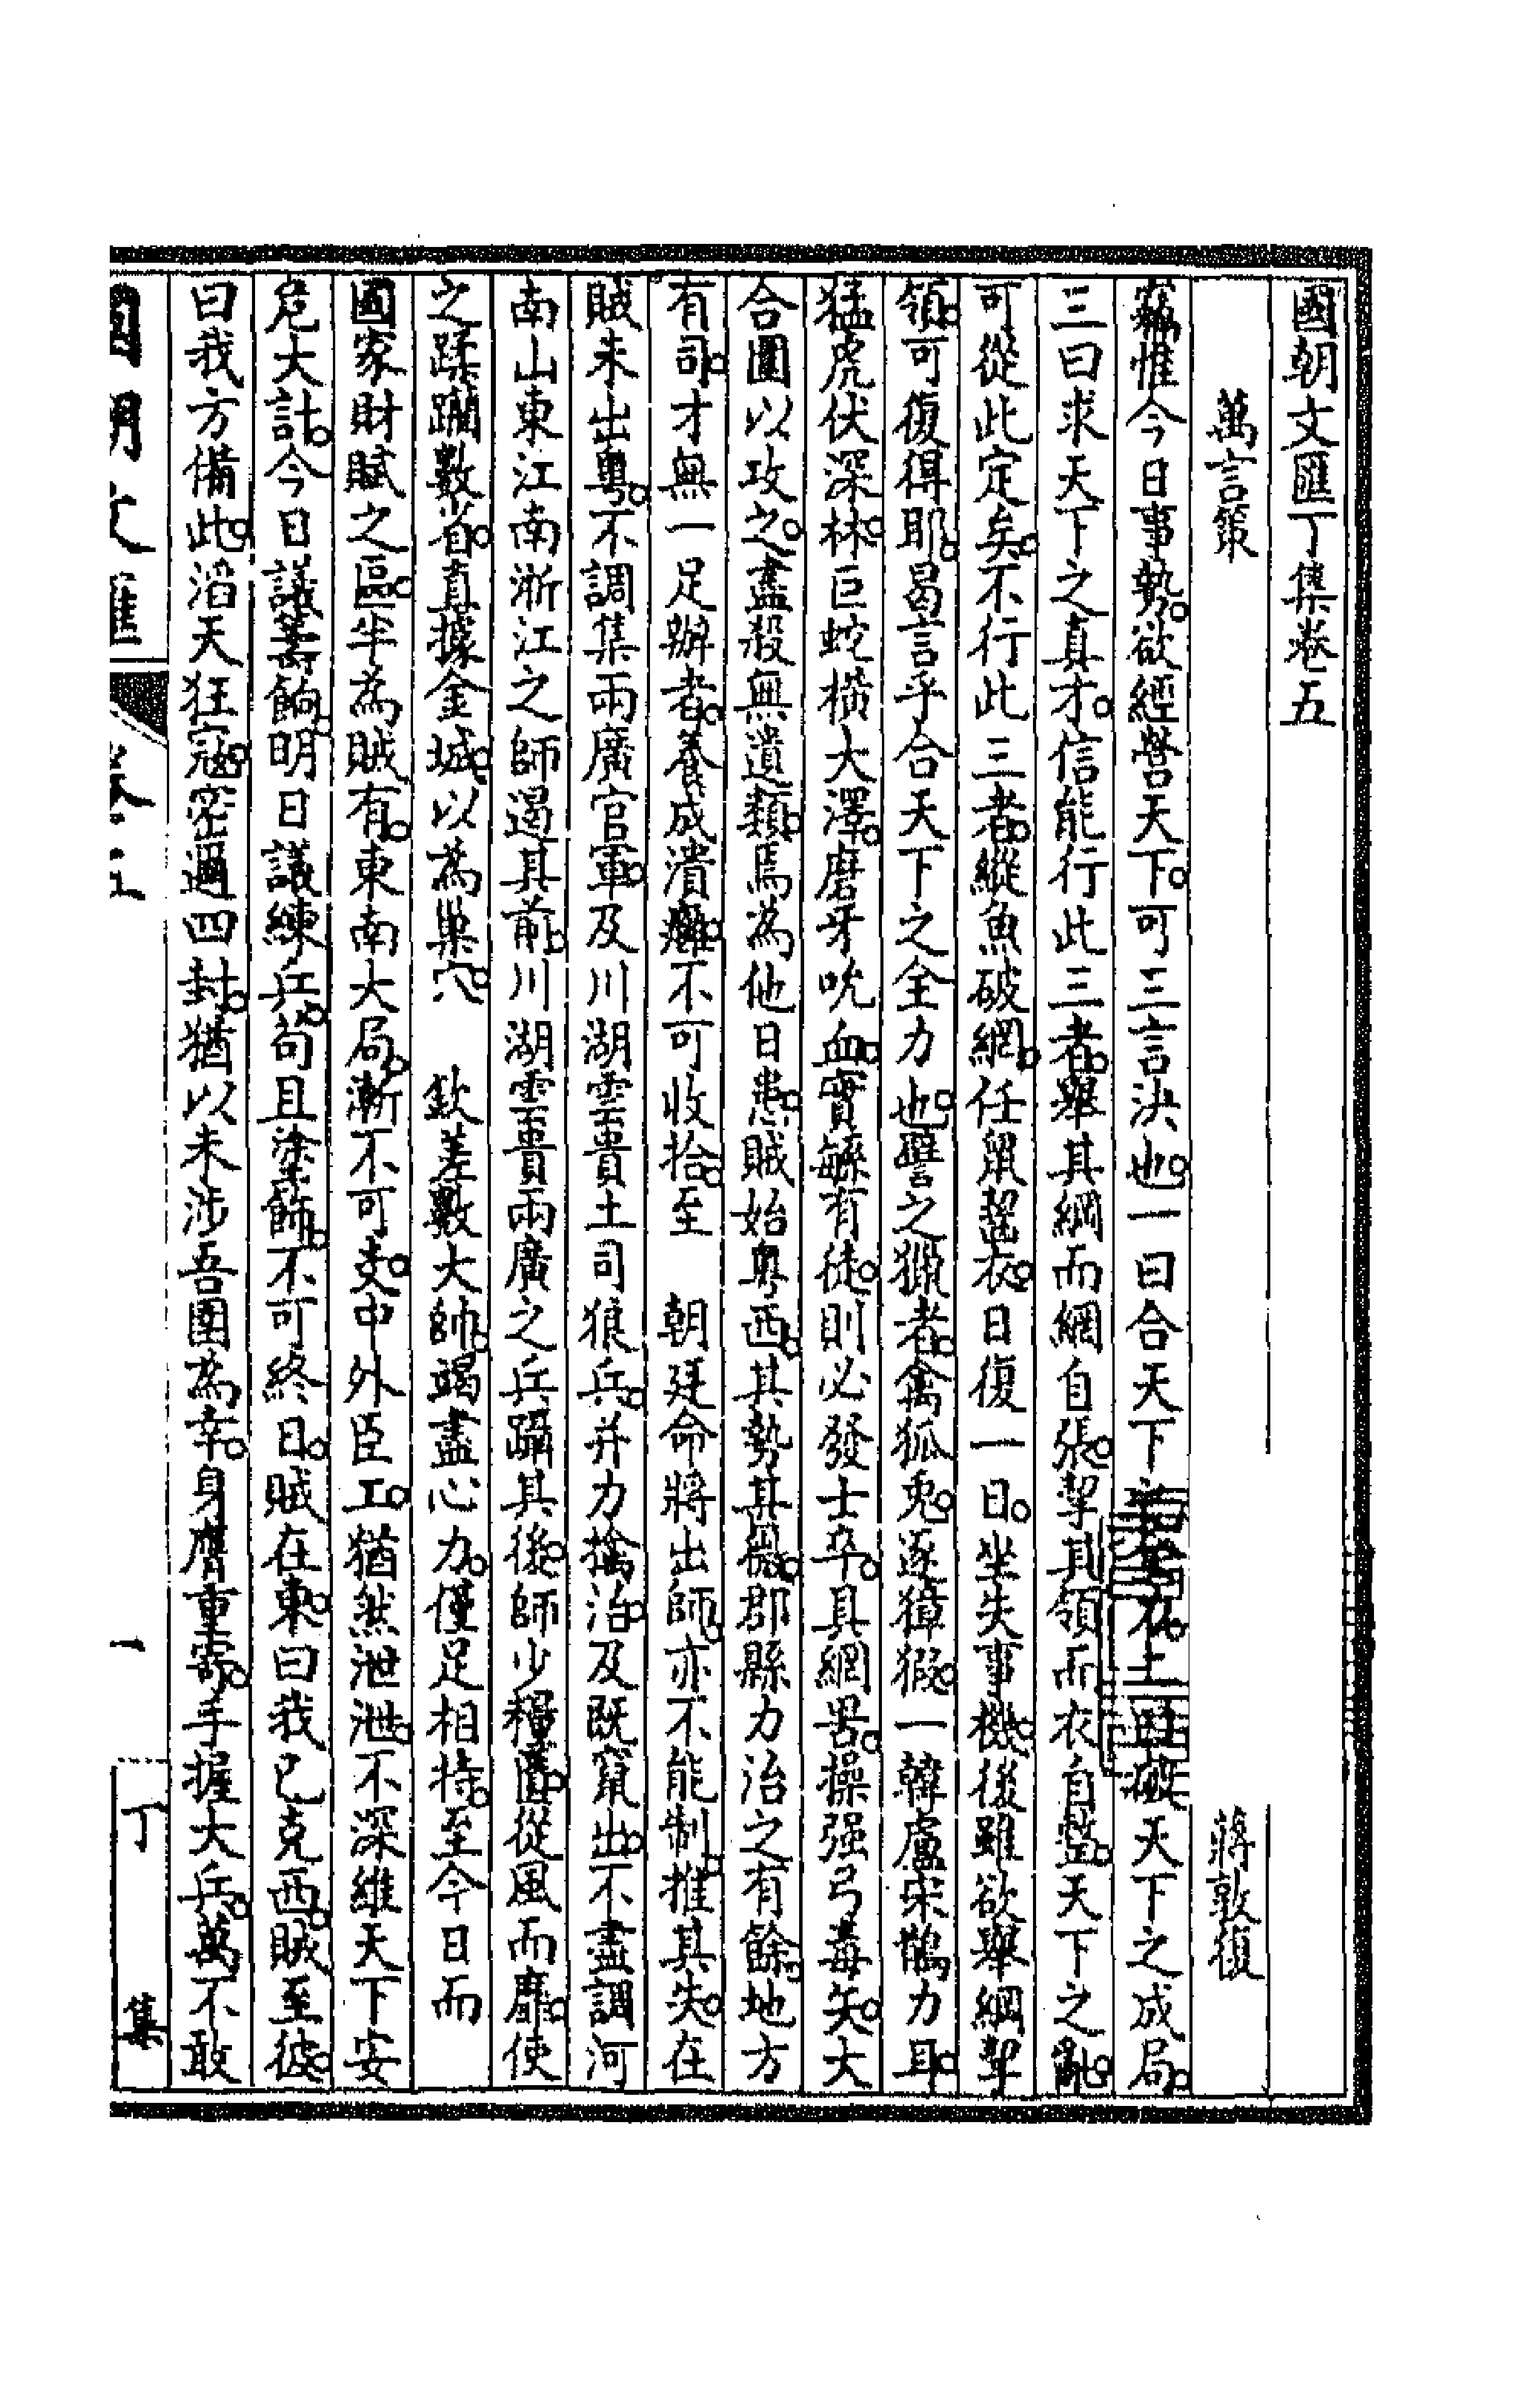 國朝文匯丁集卷五
萬言策 蔣敦復
竊惟今日事勢。欲經營天下。可三言決也。一曰合天下 破天下之成局。
三曰求天下之真才。信能行此三者。舉其綱而網自張。挈其領而衣自整。天下之亂。
可從此定矣。不行此三者。縱魚破網。任鼠齧衣。日復一日。坐失事機。後雖欲舉綱挈
領。可復得耶。曷言乎合天下之全力也。譬之獵者。禽狐兎。逐獐猳。一韓盧宋鵲力耳。
猛虎伏深林。巨蛇橫大澤。磨牙吮血。實繁有徒。則必發士卒。具網罟。操强弓毒矢。大
合圍以攻之。盡殺無遺類。焉為他日患。賊始粤西。其勢甚微。郡縣力治之有餘。地方
有司。才無一足辦者。養成潰癰。不可收拾。至 朝廷命將出師。亦不能制。推其失。在
賊未出粤。不調集兩廣官軍。及川湖雲貴土司狼兵。并力擒治。及既竄出。不盡調河
南山東江南浙江之師遏其前。川湖雲貴兩廣之兵躡其後。師少糧匱。從風而靡。使
之蹂躪數省。直據金城。以為巢穴。 欽差數大帥。竭盡心力。僅足相持。至今日而
國家財賦之區。半為賊有。東南大局。漸不可支。中外臣工。猶然泄泄。不深維天下安
危大計。今日議籌餉。明日議練兵。苟且塗飾。不可終日。賊在東。曰我已克西。賊至彼。
曰我方備此。滔天狂寇。密邇四封。猶以未涉吾圉為幸。身膺重寄。手握大兵。萬不敢
國朝文匯 卷五 一 丁集